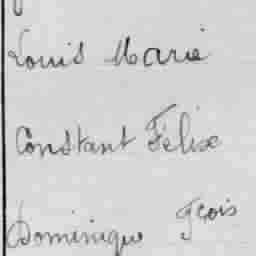 Louis Marie
Constant Félix
Dominique Fçois